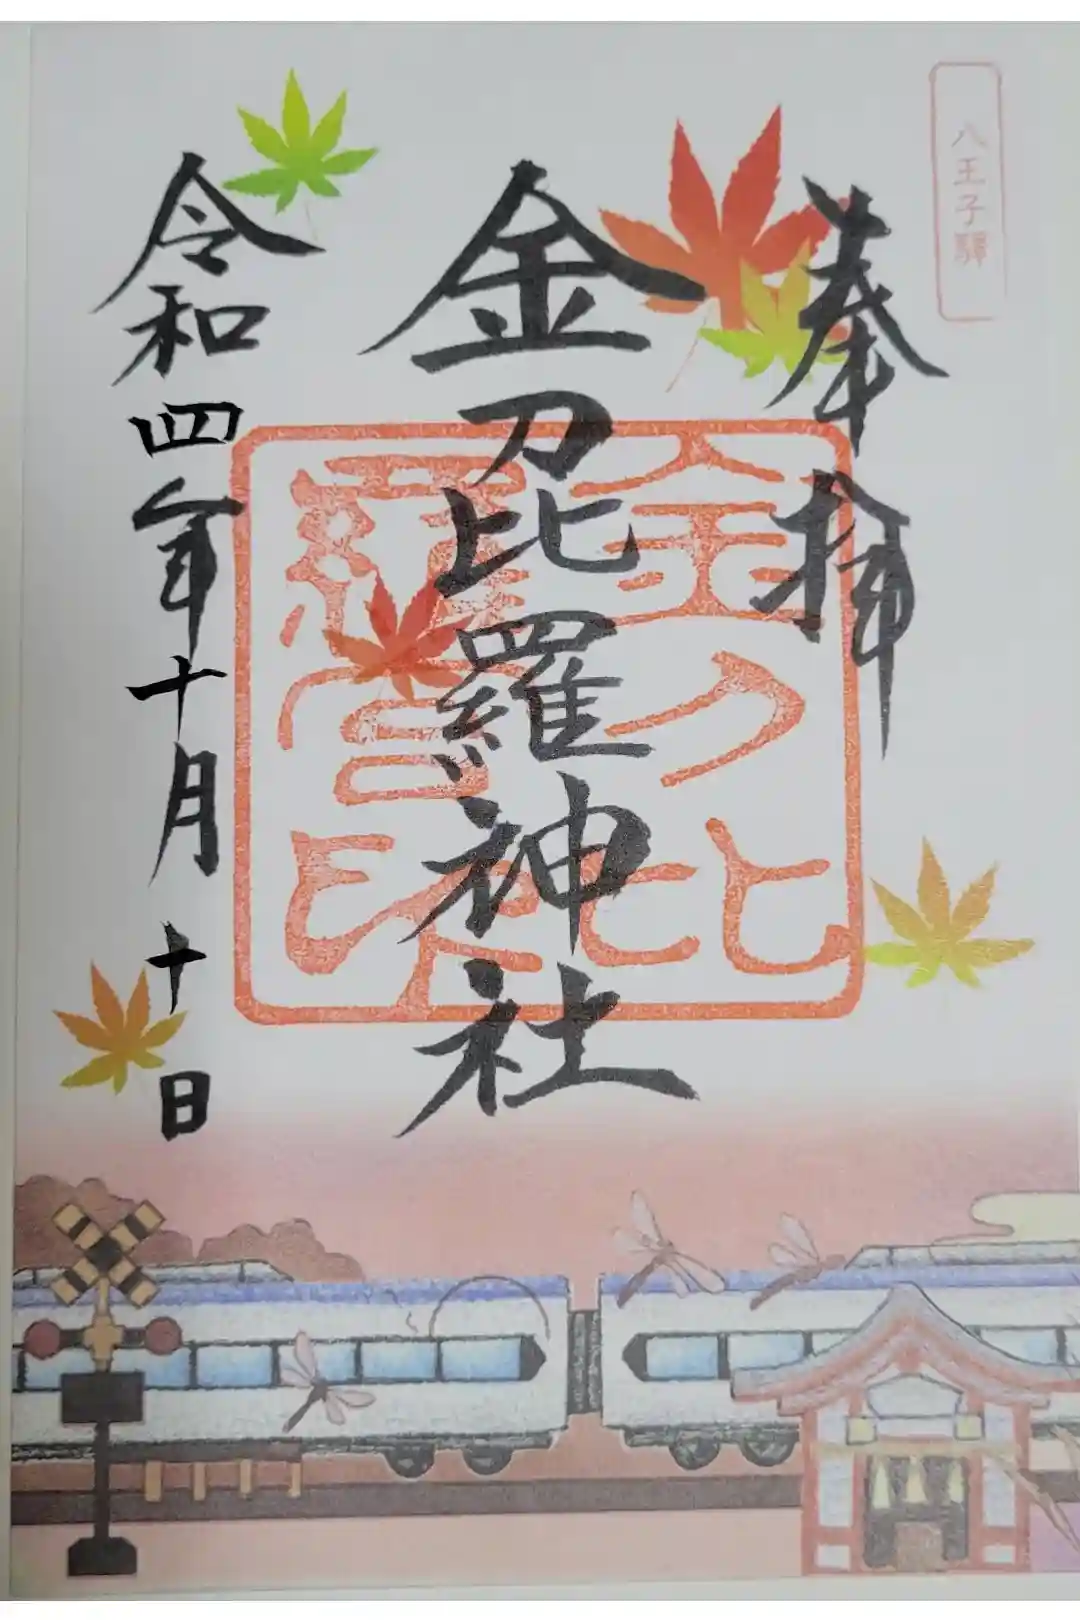 八王子驛
奉拝
金刀比羅神社
金刀比
羅宮印
令和四年十月十日